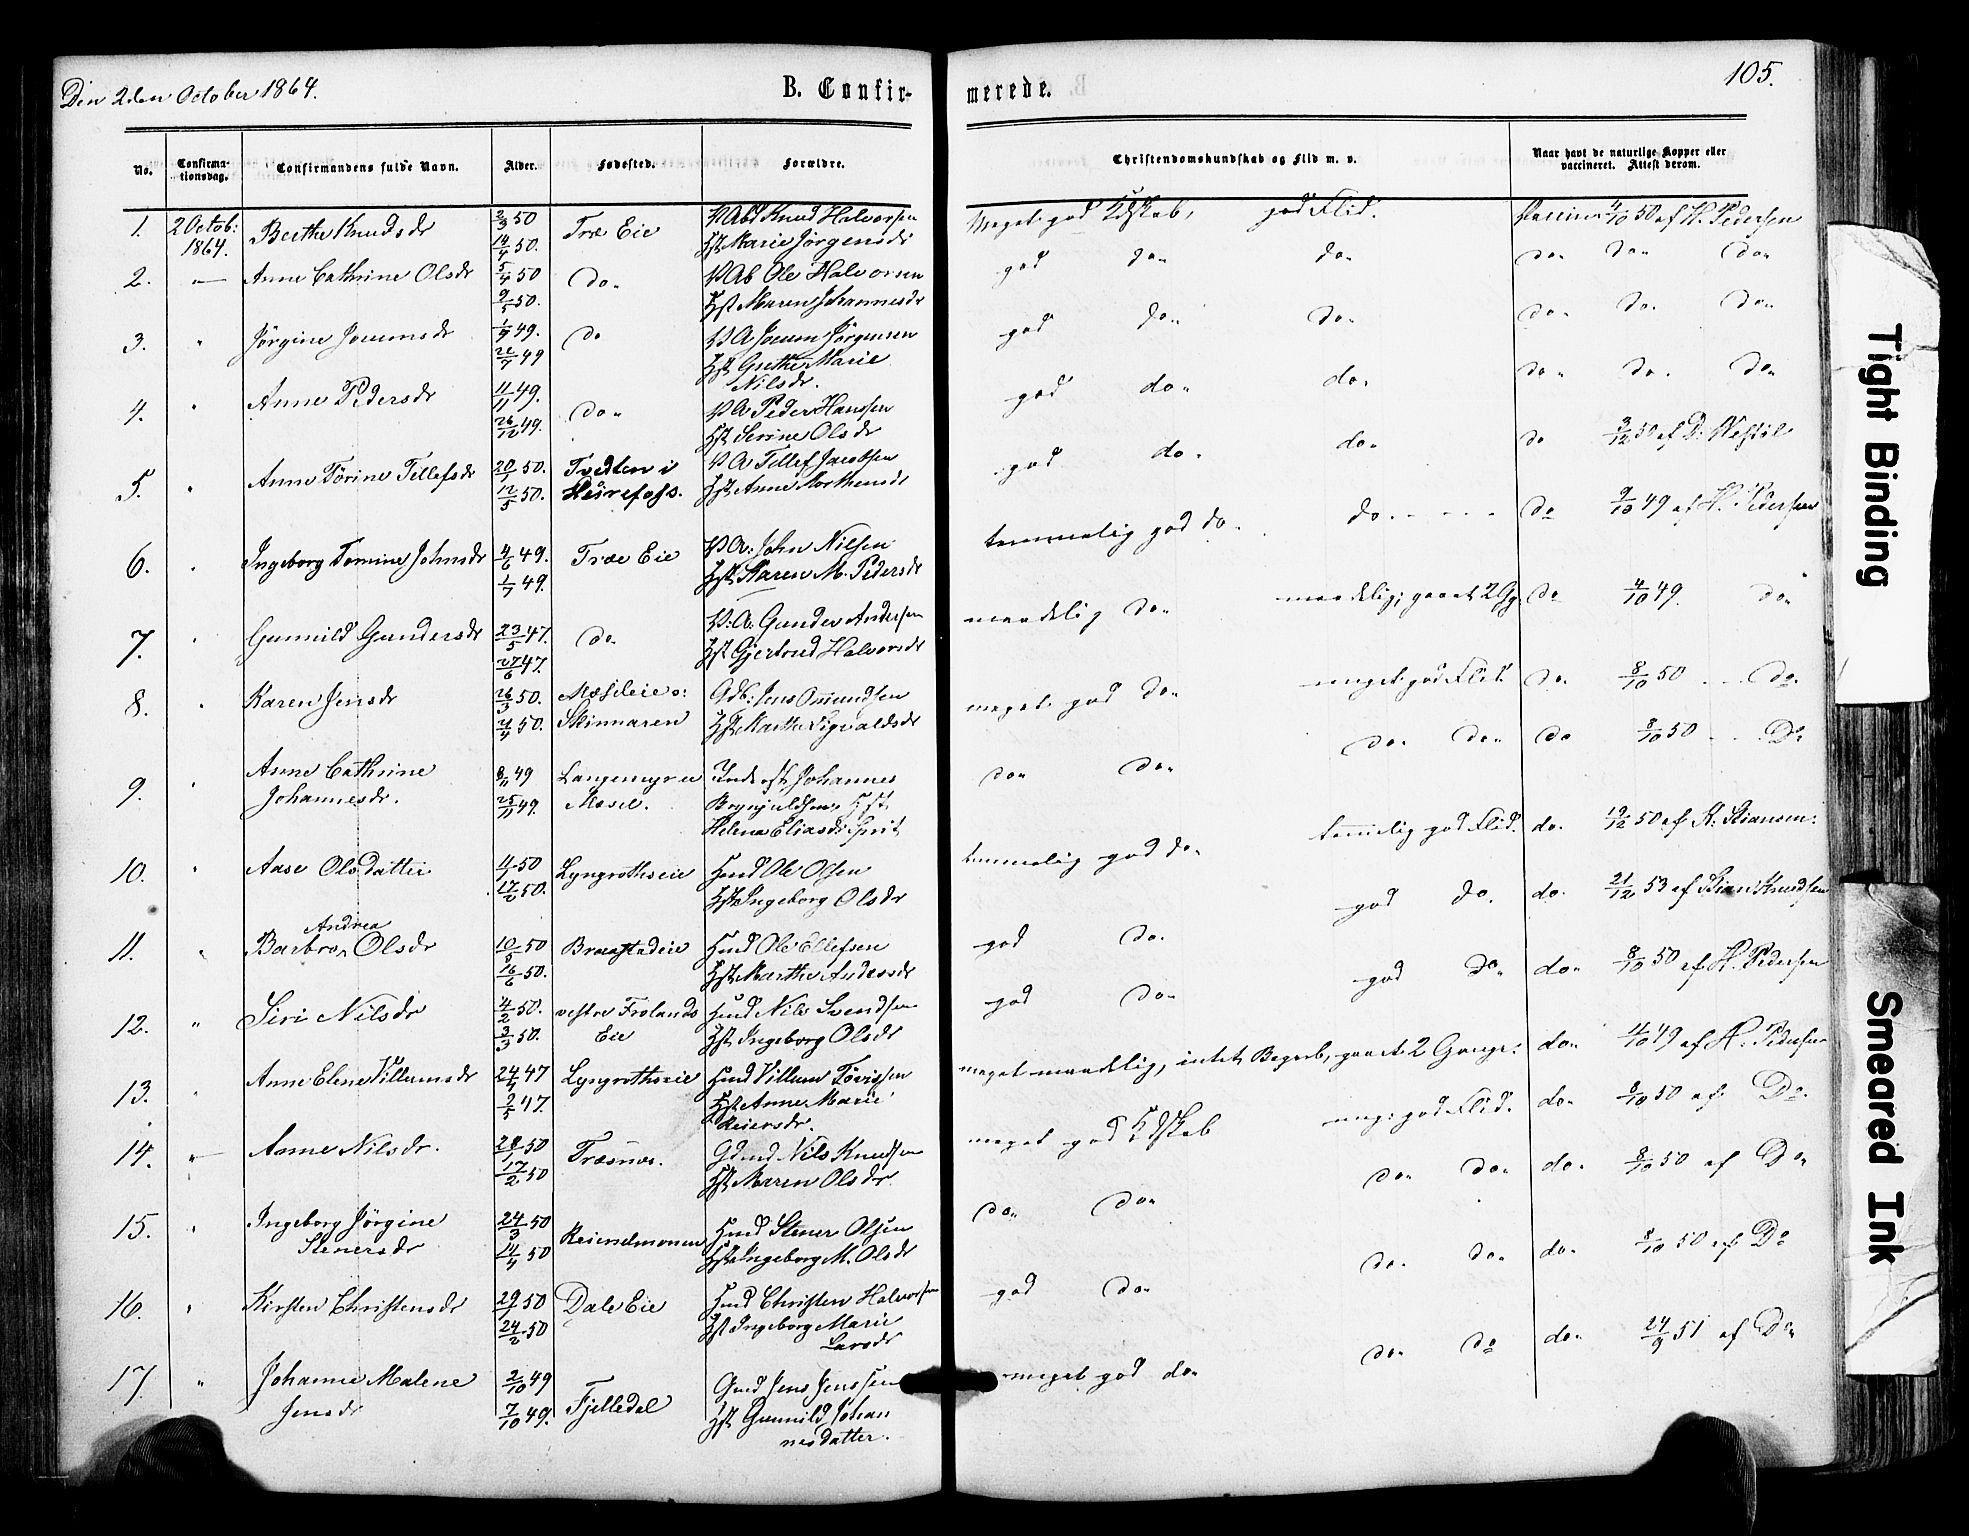 Den 2den October 1864.
B. Confir-
merede.
105.
No.
Confirma-
tionsdag.
Confirmandens fulde Navn.
Alder.
Fødested.
Forældre.
Christendomskundskab og Flid m. v.
Naar havt de naturlige Kopper eller
vaccineret. Attest derom.
1. 2 Octob: 1864. Berthe Knudsdr 2/3 50 14/4 50. Træ Eie
Knud Halvorsen
Hst Marie Jørgensdr
Meget god Kdskab, god Flid. Vaccin 4/10 50 af H. Pedersen
2. — Anne Cathrine Olsdr 5/4 50 9/5 50. Do
Ole Halvorsen
Hst Maren Johannesdr
god do do do do do
3. " Jørgine Joremsdr 49. 22/7 49 Do
Jorem Jørgensen
Hst Grethe Marie
Nilsdr.
god do do do do do
4. " Anne Pedersdr 11/11 49. 26/12 49. Do
Peder Hanssen
Hst Serine Olsdr
god do do do do do
5. " Anne Tørine Tellefsdr 20/1 50. 12/5 50. Tvedten i
Heirefoss.
Tellef Jacobsen
Hst Anne Morthensdr
god do do do 3/12 50 af D: Westøl
6. " Ingeborg Tomine Johnsdr 4/6 49. 1/7 49. Træe Eie
John Nilsen
Hst Karen M. Pedersdr
temmelig god do. do. - - - - do 9/10 49 af H. Pedersen
7. " Gunnild Gundersdr 23/5 47. 27/6 47. Do
Gunder Andersen
Hst Gjertrud Halvorsdr
maadelig do maadelig, gaaet 2 Gg. do 4/10 49. do
8. " Karen Jensdr 26/3 50. 4/4 50. Mæsileie o:
Skinnaren
Jens Omundsen
Hst Marthe Sigvaldsdr
meget god do meget god Flid. do. 8/10 50 - - - do.
9. " Anne Cathrine
Johannesdr. 8/11 49 25/11 49. Langemyren
Mæsel.
Johannes
Brynjuldsen, Hst
Helene Eliasdr
do do do do do 8/10 50 - - - Do
10. " Aase Olsdatter 4/1 50 17/2 50. Lyngrothseie
Hmd Ole Olsen
Hst Ingeborg Olsdr
temmelig god do temelig god Flid. do. 19/12 50 af K. Stiansen.
11. " Andrea
Barbro Olsdr 10/5 50 16/6 50. Braastadeie
Hmd Ole Ellefsen
Hst Marthe Andersdr
god do. god do. do. 21/12 53 af Stian Knudsen
12. " Siri Nilsdr 4/2 50. 3/3 50. vestre Frolands
Eie
Hmd Nils Svendsen
Hst Ingeborg Olsdr
god do god do do 8/10 50 af H. Pedersen
13. " Anne Elene Villumsdr 24/4 47 2/5 47. Lyngrothseie
Hmd Villum Tovissen
Hst Anne Marie
Reiersdr.
meget maadelig, intet Begreb, gaaet 2 Gange. do 4/10 49 af H. Pedersen
14. " Anne Nilsdr. 28/1 50 17/2 50 Træsnæs.
Nils Knudsen
Hst Maren Olsdr.
meget god Kdskab meg: god Flid. do 8/10 50 af Do.
15. " Ingeborg Jørgine
Stenersdr 24/3 50 14/4 50
Hmd Stener Olsen
Hst Ingeborg M. Olsdr
do do do do do. 8/10 50 af Do
16. " Kirsten Christensdr 29/1 50 24/2 50 Dale Eie
Hmd Christen Halvorsen
Hst Ingeborg Marie
Larsdr
god do do. do do. 8/10 50 af Do
17. " Johanne Malene
Jensdr 2/10 49 7/10 49. Fjelledal
Gmd Jens Jenssen
Hst Gunnild Johan
nesdatter.
meget god do do do do 24/9 51 af Do
Tight Binding
Smeared Ink